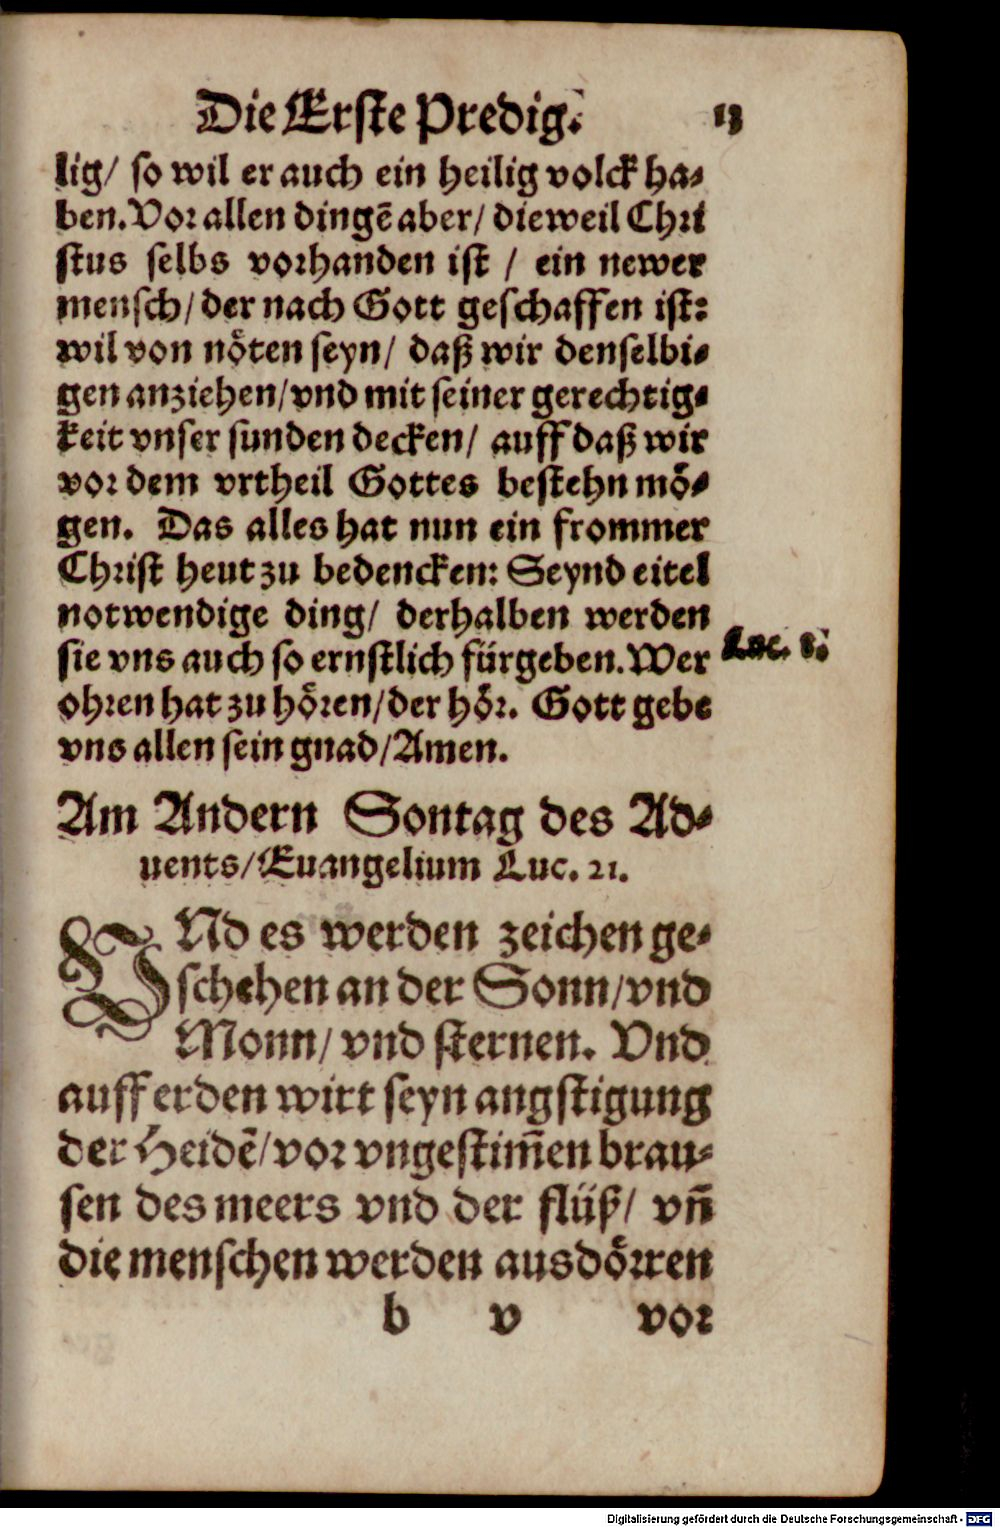 Die Erste Predig. 13
lig/ so wil er auch ein heilig volck ha-
ben. Vor allen dingẽ aber/ dieweil Chri
stus selbs vorhanden ist / ein newer
mensch/ der nach Gott geschaffen ist:
wil von nöten seyn/ daß wir denselbi-
gen anziehen/ vnd mit seiner gerechtig-
keit vnser sunden decken/ auff daß wir
vor dem vrtheil Gottes bestehn mö-
gen. Das alles hat nun ein frommer
Christ heut zu bedencken: Seynd eitel
notwendige ding/ derhalben werden
sie vns auch so ernstlich fürgeben. Wer
Luc. 8.
ohren hat zu hören/ der hör. Gott gebe
vns allen sein gnad/ Amen.
Am Andern Sontag des Ad-
uents/ Euangelium Luc. 21.
VNd es werden zeichen ge-
schehen an der Sonn/ vnd
Monn/ vnd sternen. Vnd
auff erden wirt seyn angstigung
der Heidẽ/ vor vngestim̃en brau-
sen des meers vnd der flüß/ vñ
die menschen werden ausdörren
b v vor
Digitalisierung gefördert durch die Deutsche Forschungsgemeinschaft - DFG